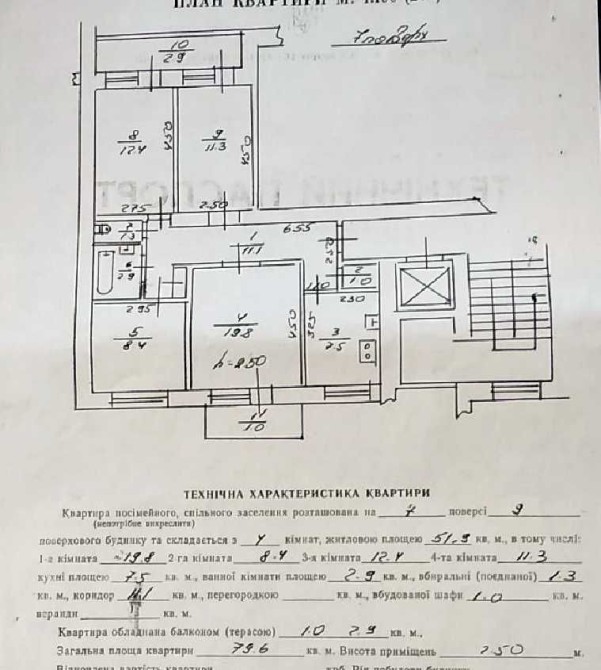 ПЛАН КВАРТИРИ
7 поверх
10
2.9
8
12.4
9
11.3
4.50
4.50
2.75
2.50
7
1.3
6.55
1
11.1
2
1.0
6
2.9
2.95
1.10
2.30
5
8.4
4
19.8
4.50
3.25
3
7.5
h=2.50
11
1.0
ТЕХНІЧНА ХАРАКТЕРИСТИКА КВАРТИРИ
Квартира посімейного, спільного заселення розташована на 7 поверсі 9
(непотрібне викреслити)
поверхового будинку та складається з 4 кімнат, житловою площею 51.9 кв. м., в тому числі:
1-а кімната 19.8 2-га кімната 8.4 3-я кімната 12.4 4-та кімната 11.3
кухні площею 7.5 кв. м., ванної кімнати площею 2.9 кв. м., вбиральні (поєднаної) 1.3
кв. м., коридор 11.1 кв. м., перегородкою кв. м., вбудованої шафи 1.0 кв. м.
веранди кв. м.
Квартира обладнана балконом (терасою) 1.0 2.9 кв. м.,
Загальна площа квартири 79.6 кв. м. Висота приміщень 2.50 м.